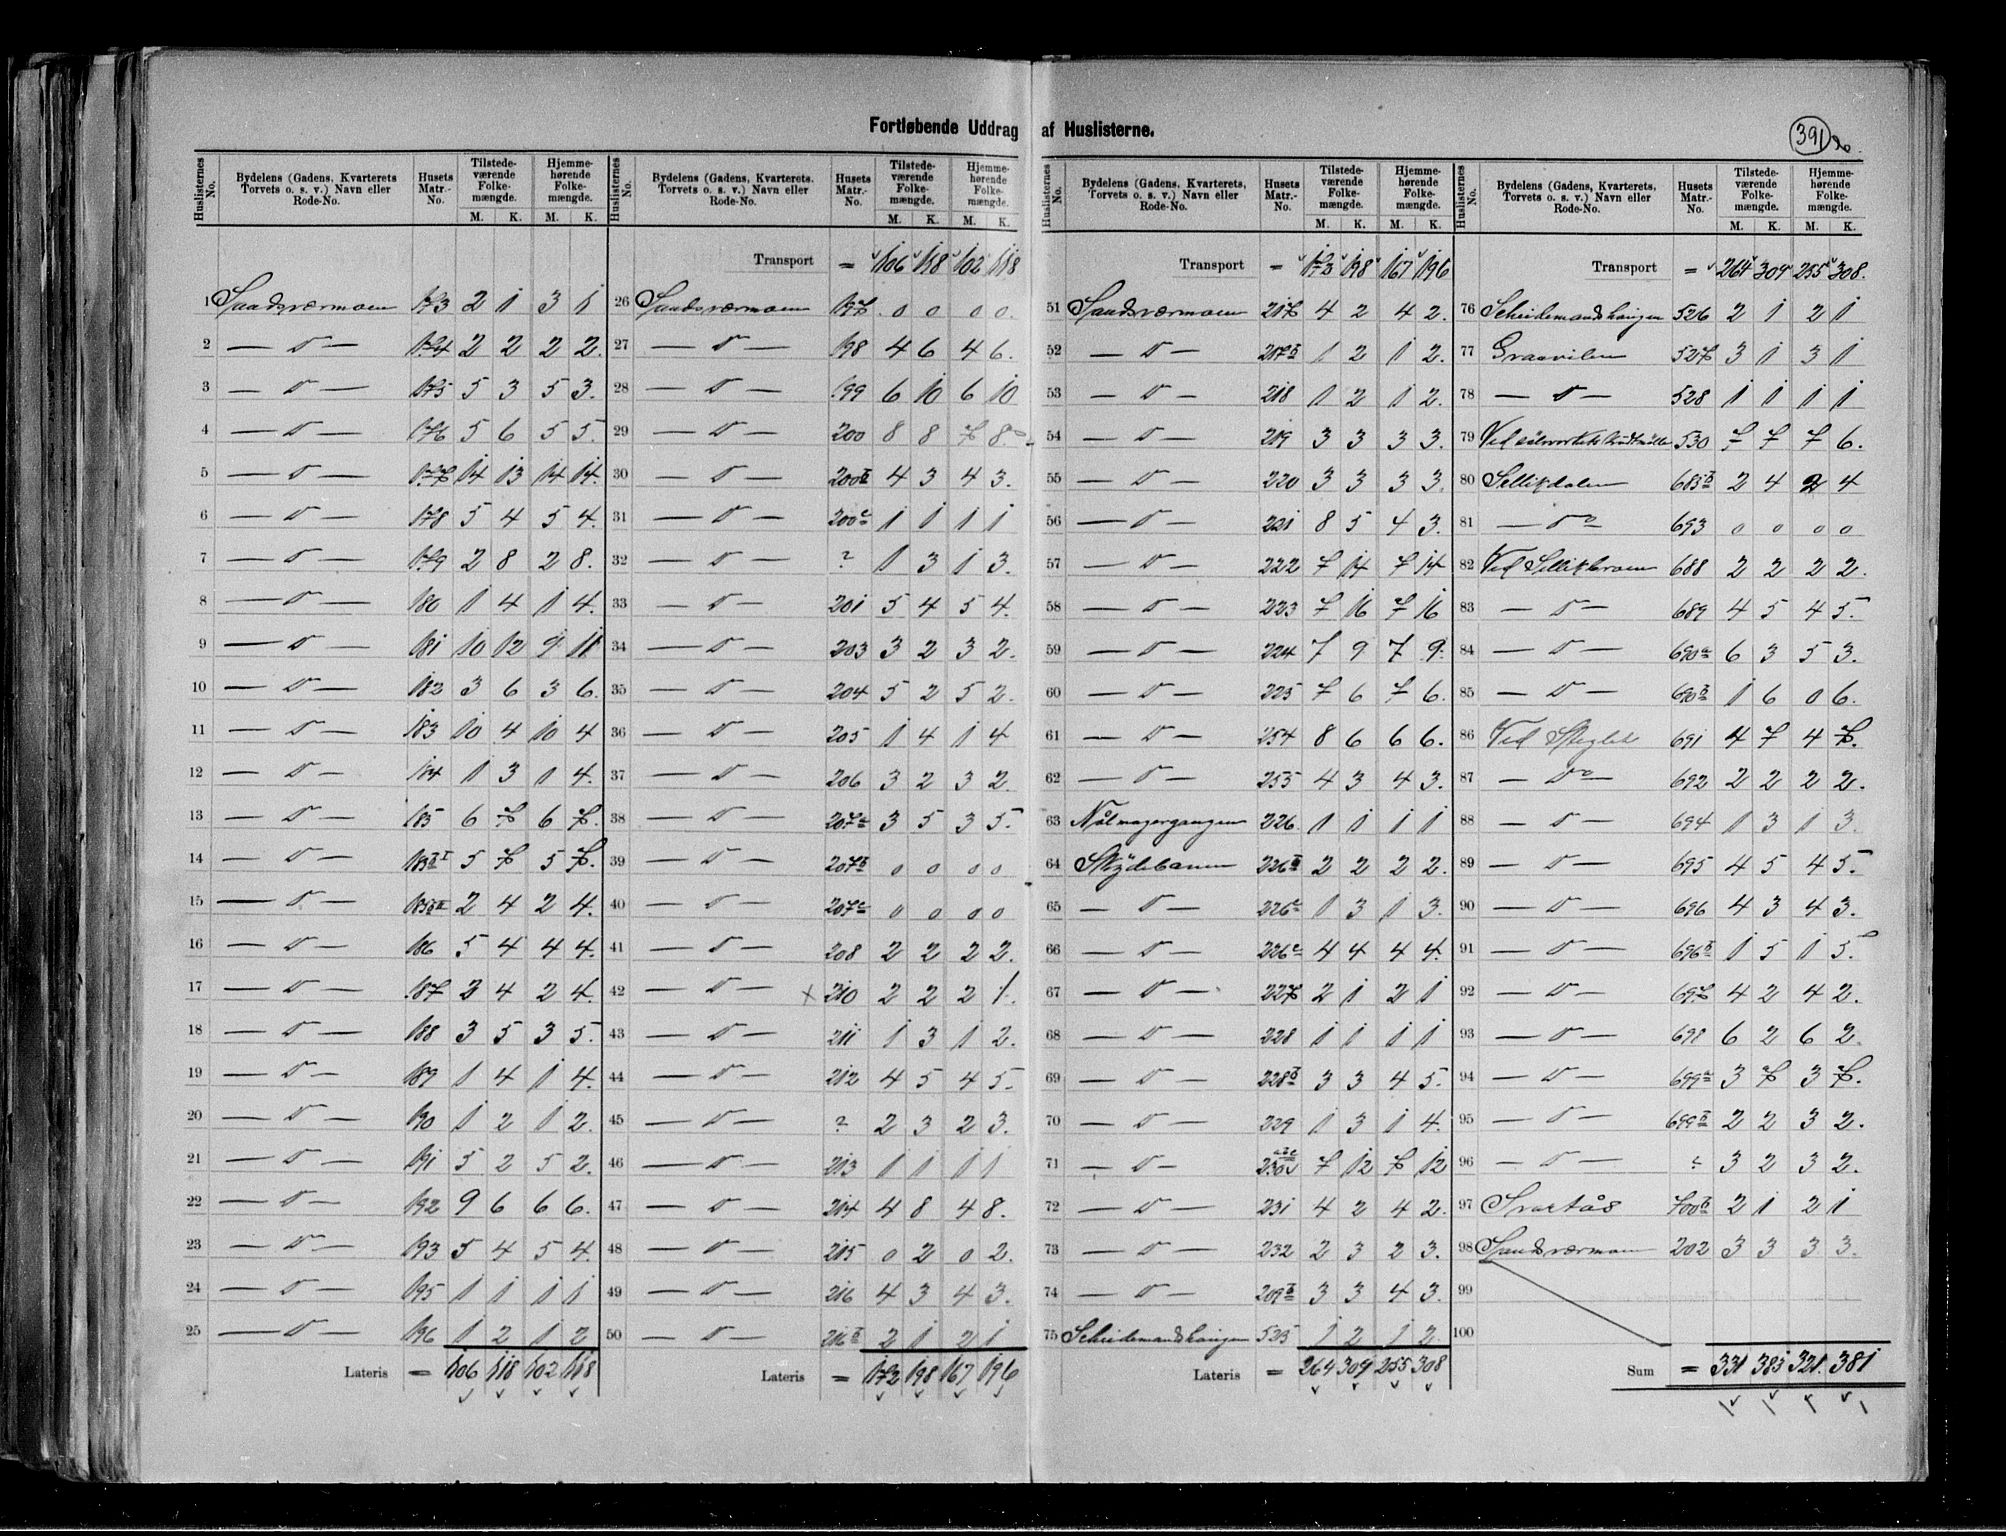 Fortløbende Uddrag af Huslisterne.
391
Huslisternes No. | Bydelens (Gadens, Kvarterets, Torvets o. s. v.) Navn eller Rode-No. | Husets Matr.-No. | Tilstede-værende Folke-mængde. M. K. | Hjemme-hørende Folke-mængde. M. K.
1 Sandsværmoen 173 2 1 3 1
2 — " — 174 2 2 2 2.
3 — " — 175 5 3 5 3.
4 — " — 176 5 6 5 5.
5 — " — 177 14 13 14 14.
6 — " — 178 5 4 5 4.
7 — " — 179 2 8 2 8.
8 — " — 180 1 4 1 4.
9 — " — 181 10 12 9 11
10 — " — 182 3 6 3 6.
11 — " — 183 10 4 10 4
12 — " — 184 1 3 1 4.
13 — " — 185 6 7 6 7.
14 — " — 5 7 5 7.
15 — " — 2 4 2 4.
16 — " — 186 5 4 4 4.
17 — " — 187 2 4 2 4.
18 — " — 188 3 5 3 5.
19 — " — 189 1 4 1 4.
20 — " — 190 1 2 1 2.
21 — " — 191 5 2 5 2.
22 — " — 192 9 6 6 6.
23 — " — 193 5 4 5 4.
24 — " — 195 1 1 1 1
25 — " — 196 1 2 1 2
Lateris = 106 118 102 118
Transport = 106 118 102 118
26 Sandsværmoen 197 0 0 0 0.
27 — " — 198 4 6 4 6.
28 — " — 199 6 10 6 10
29 — " — 200 8 8 7 8
30 — " — 200b 4 3 4 3.
31 — " — 200c 1 1 1 1
32 — " — ? 1 3 1 3.
33 — " — 201 5 4 5 4.
34 — " — 203 3 2 3 2.
35 — " — 204 5 2 5 2.
36 — " — 205 1 4 1 4
37 — " — 206 3 2 3 2.
38 — " — 207a 3 5 3 5.
39 — " — 207b 0 0 0 0
40 — " — 207c 0 0 0 0
41 — " — 208 2 2 2 2.
42 — " — x 210 2 2 2 1.
43 — " — 211 1 3 1 2.
44 — " — 212 4 5 4 5.
45 — " — ? 2 3 2 3.
46 — " — 213 1 1 1 1
47 — " — 214 4 8 4 8.
48 — " — 215 0 2 0 2.
49 — " — 216 4 3 4 3.
50 — " — 216b 2 1 2 1
Lateris = 172 198 167 196
Transport = 173 198 167 196
51 Sandsværmoen 217 4 2 4 2.
52 — " — 217b 1 2 1 2.
53 — " — 218 1 2 1 2.
54 — " — 219 3 3 3 3.
55 — " — 220 3 3 3 3.
56 — " — 221 8 5 4 3.
57 — " — 222 7 14 7 14
58 — " — 223 7 16 7 16
59 — " — 224 7 9 7 9.
60 — " — 225 7 6 7 6.
61 — " — 254 8 6 6 6.
62 — " — 255 4 3 4 3.
63 Nålmagergangen 226. 1 1 1 1
64 Skydebanen 226b 2 2 2 2.
65 — " — 226c 1 3 1 3.
66 — " — 4 4 4 4.
67 — " — 227 2 1 2 1
68 — " — 228 1 1 1 1
69 — " — 228b 3 3 4 5.
70 — " — 229 1 3 1 4.
71 — " — 230 7 12 7 12
72 — " — 231 4 2 4 2.
73 — " — 232 2 3 2 3.
74 — " — 209b 3 3 4 3.
75 Scheidemandshaugen 525 1 2 1 2.
Lateris = 264 304 255 308
Transport = 264 304 255 308.
76 Scheidemandshaugen 526 2 1 2 1
77 Graavilen 527 3 1 3 1
78 — " — 528 1 1 1 1
79 Ved sølvverkets 530 7 7 7 6.
80 Sellikdalen 685b 2 4 2 4
81 — " — 693 0 0 0 0
82 Ved Sellikbroen 688 2 2 2 2.
83 — " — 689 4 5 4 5.
84 — " — 690a 6 3 5 3.
85 — " — 690b 1 6 0 6.
86 Ved 691 4 7 4 7.
87 — " — 692 2 2 2 2.
88 — " — 694 1 3 1 3.
89 — " — 695 4 5 4 5.
90 — " — 696 4 3 4 3.
91 — " — 696b 1 5 1 5.
92 — " — 697 4 2 4 2.
93 — " — 698 6 2 6 2.
94 — " — 699a 3 7 3 7.
95 — " — 699b 2 2 3 2.
96 — " — ? 3 2 3 2.
97 Svartås 700b 2 1 2 1
98 Sandsværmoen 202 3 3 3 3.
99
100
Sum = 331 383 321. 381